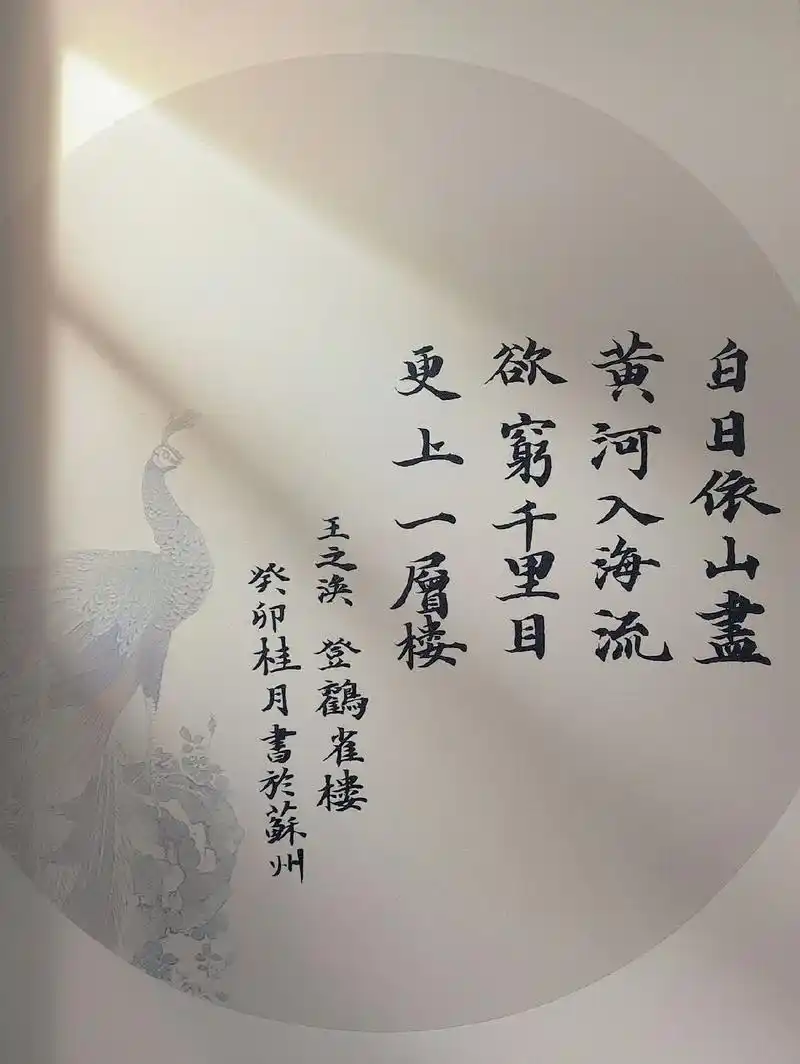 白日依山盡
黄河入海流
欲窮千里目
更上一層楼
王之涣 登鸛雀楼
癸卯桂月書於蘇州